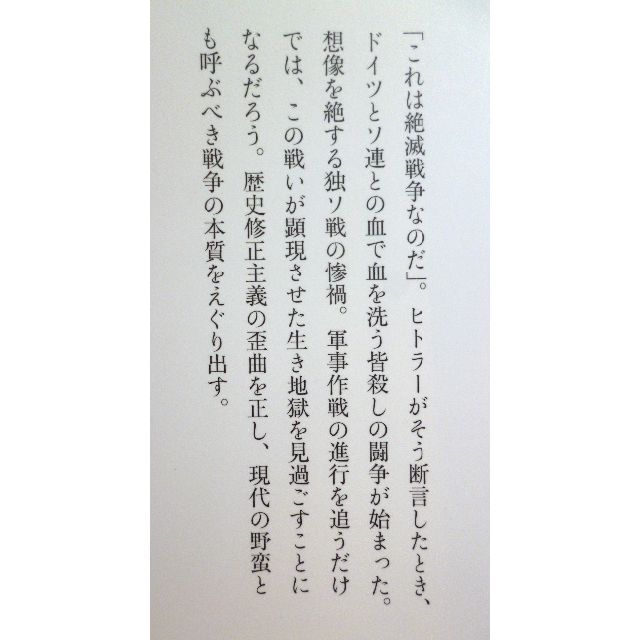 「これは絶滅戦争なのだ」。ヒトラーがそう断言したとき、
ドイツとソ連との血で血を洗う皆殺しの闘争が始まった。
想像を絶する独ソ戦の惨禍。軍事作戦の進行を追うだけ
では、この戦いが顕現させた生き地獄を見過ごすことに
なるだろう。歴史修正主義の歪曲を正し、現代の野蛮と
も呼ぶべき戦争の本質をえぐり出す。